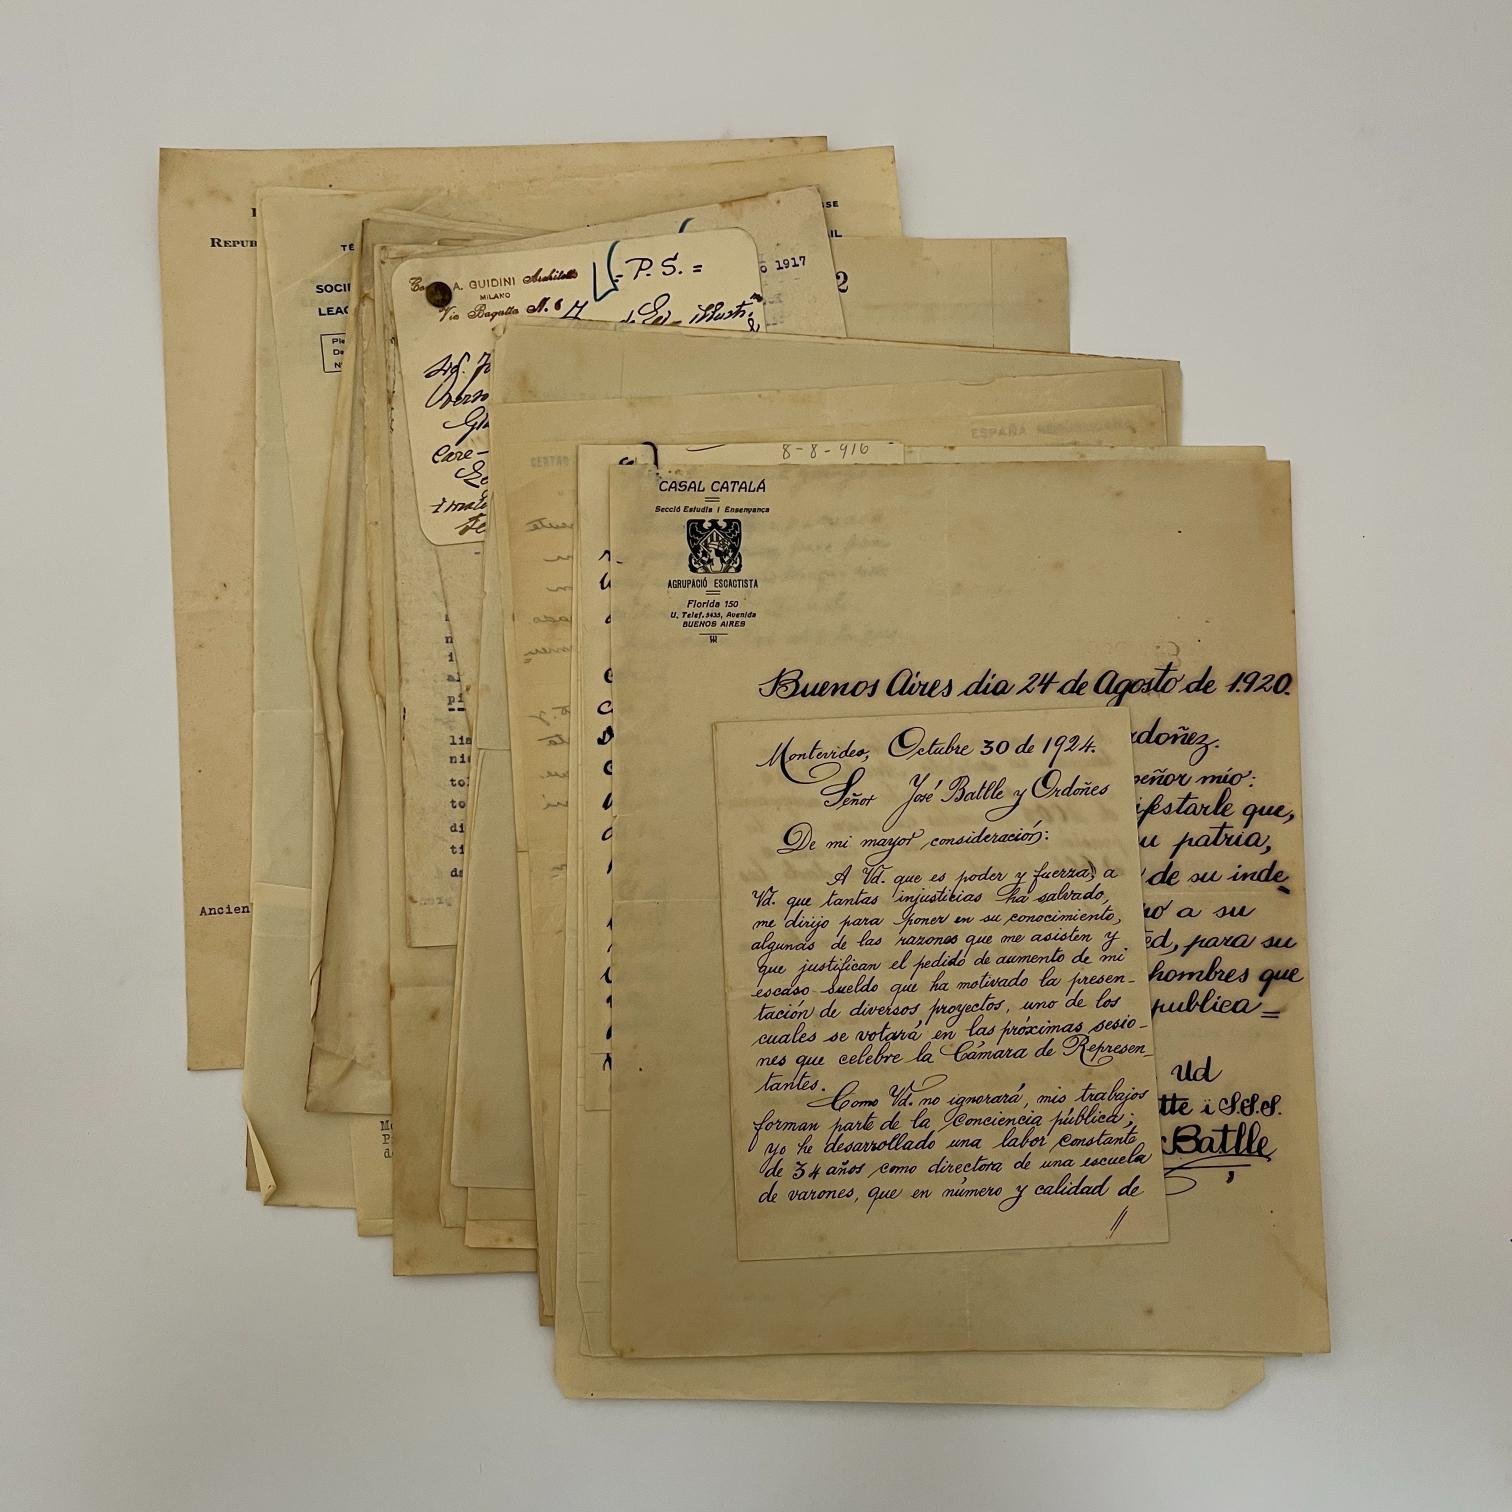 REPUB
TÉ
SOCI
LEAG
SSE
1917
2
A. GUIDINI Architetto
MILANO
Via Bagutta N. 6
= P. S. =
Sig. Jo
Care-
ESPAÑA
CENTRO
8-8-916
CASAL CATALÁ
Secció Estudis i Ensenyança
AGRUPACIÓ ESCACTISTA
Florida 150
U. Telef. 5435, Avenida
BUENOS AIRES
Buenos Aires dia 24 de Agosto de 1.920.
rdoñez.
señor mío:
ifestarle que,
u patria,
de su inde-
a su
ed, para su
hombres que
publica=
Ud
tte i S.S.S.
Batlle
Montevideo, Octubre 30 de 1924.
Señor José Batlle y Ordoñes
De mi mayor consideración:
A Vd. que es poder y fuerza, a
Vd. que tantas injusticias ha salvado,
me dirijo para poner en su conocimiento,
algunas de las razones que me asisten y
que justifican el pedido de aumento de mi
escaso sueldo que ha motivado la presen-
tación de diversos proyectos, uno de los
cuales se votará en las próximas sesio-
nes que celebre la Cámara de Represen-
tantes.
Como Vd. no ignorará, mis trabajos
forman parte de la conciencia pública;
yo he desarrollado una labor constante
de 34 años como directora de una escuela
de varones, que en número y calidad de
//
lia
ni
tol
to
di
ti
de
Ancien